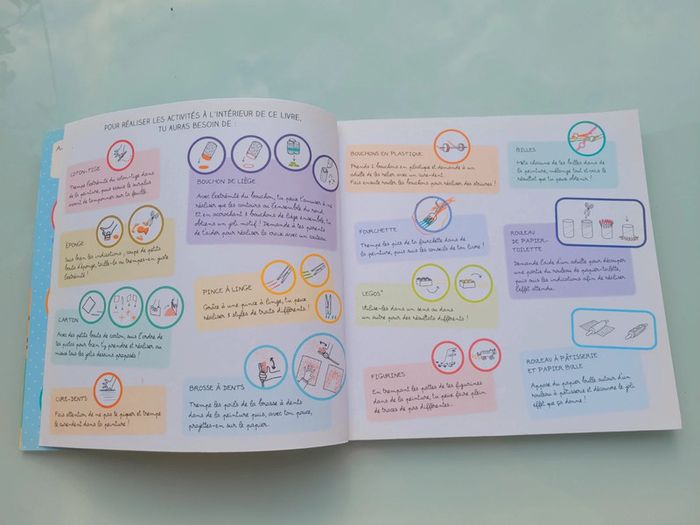 POUR RÉALISER LES ACTIVITÉS À L'INTÉRIEUR DE CE LIVRE,
TU AURAS BESOIN DE :
COTON-TIGE
Trempe l'extrémité du coton-tige dans
de la peinture, puis essuie le surplus
avant de tamponner sur la feuille.
ÉPONGE
Suis bien les indications, coupe de petits
bouts d'éponge, taille-la ou trempes-en juste
l'extrémité !
CARTON
Avec des petits bouts de carton, suis l'ordre de
les pour bien t'y prendre et réaliser au
mieux tous les jolis dessins proposés !
CURE-DENTS
Fais attention de ne pas te piquer et trempe
le cure-dent dans la peinture !
BOUCHON DE LIÈGE
Avec l'extrémité du bouchon, tu peux t'amuser à ne
réaliser que les contours ou l'ensemble du rond.
Et en accrochant 3 bouchons de liège ensemble, tu
obtiens un joli motif ! Demande à tes parents
de t'aider pour réaliser la croix avec un couteau.
PINCE À LINGE
Grâce à une pince à linge, tu peux
réaliser 3 styles de traits différents !
BROSSE À DENTS
Trempe les poils de la brosse à dents
dans de la peinture puis, avec ton pouce,
projettes-en sur le papier.
BOUCHONS EN PLASTIQUE
Prends 2 bouchons en plastique et demande à un
adulte de les relier avec un cure-dent.
Fais ensuite rouler les bouchons pour réaliser des rayures !
BILLES
Mets chacune de tes billes dans de
la peinture, mélange tout et vois le
résultat que tu peux obtenir !
FOURCHETTE
Trempe les pics de ta fourchette dans de
la peinture, puis suis les conseils de ton livre !
ROULEAU
DE PAPIER-
TOILETTE
Demande l'aide d'un adulte pour découper
une partie du rouleau de papier-toilette,
puis suis les indications afin de réaliser
l'effet attendu.
LEGOS
Utilise-les dans un sens ou dans
un autre pour des résultats différents !
FIGURINES
En trempant les pattes de tes figurines
dans de la peinture, tu peux faire plein
de traces de pas différentes.
ROULEAU À PÂTISSERIE
ET PAPIER BULLE
Appose du papier bulle autour d'un
rouleau à pâtisserie et découvre le joli
effet que ça donne !